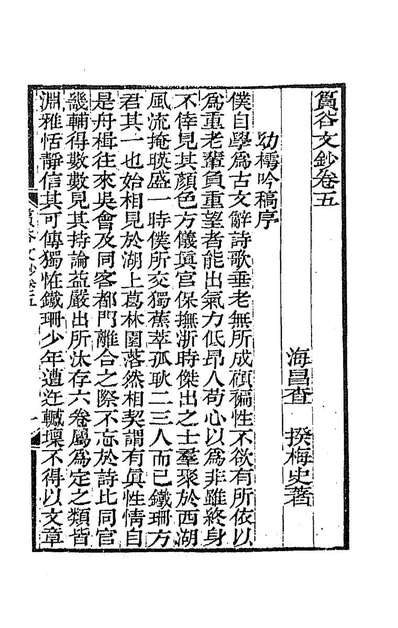 篔谷文鈔卷五
海昌查 揆梅史著
幼樗吟稿序
僕自學爲古文辭詩歌垂老無所成頑褊性不欲有所依以
爲重老輩負重望者能出氣力低昂人茍心以爲非雖終身
不倖見其顏色方儀眞官保撫浙時傑出之士羣聚於西湖
風流掩映盛一時僕所交獨蕉萃孤耿二三人而已鐵珊方
君其一也始相見於湖上葛林園落然相契謂有眞性情自
是舟楫往來吳會及同客都門離合之際不忘於詩比同官
畿輔得數數見其持論益嚴出所汰存六卷屬爲定之類皆
淵雅恬靜信其可傳獨恠鐵珊少年遭迍轗壈不得以文章
篔谷文鈔卷五
一